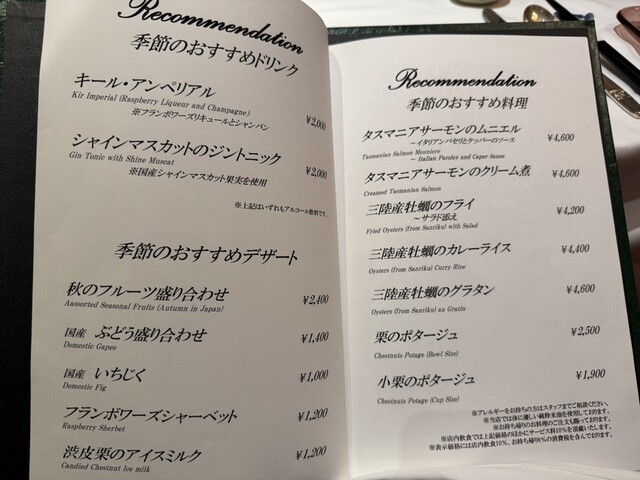 Recommendation
季節のおすすめドリンク
キール・アンペリアル
Kir Imperial (Raspberry Liqueur and Champagne)
※フランボワーズリキュールとシャンパン
¥2,000
シャインマスカットのジントニック
Gin Tonic with Shine Muscat
※国産シャインマスカット果実を使用
¥2,000
※上記はいずれもアルコール飲料です。
季節のおすすめデザート
秋のフルーツ盛り合わせ ¥2,400
Assorted Seasonal Fruits (Autumn in Japan)
国産 ぶどう盛り合わせ ¥1,400
Domestic Gapes
国産 いちじく ¥1,000
Domestic Fig
フランボワーズシャーベット ¥1,200
Raspberry Sherbet
渋皮栗のアイスミルク ¥1,200
Candied Chestnut Ice milk
Recommendation
季節のおすすめ料理
タスマニアサーモンのムニエル ¥4,600
～イタリアンパセリとケッパーのソース
Tasmanian Salmon Mouniere
～ Italian Parsley and Caper Sauce
タスマニアサーモンのクリーム煮 ¥4,600
Creamed Tasmanian Salmon
三陸産牡蠣のフライ ¥4,200
～サラダ添え
Fried Oysters (from Sanriku) with Salad
三陸産牡蠣のカレーライス ¥4,400
Oysters (from Sanriku) Curry Rice
三陸産牡蠣のグラタン ¥4,600
Oysters (from Sanriku) au Gratin
栗のポタージュ ¥2,500
Chestnuts Potage (Bowl Size)
小栗のポタージュ ¥1,900
Chestnuts Potage (Cup Size)
※アレルギーをお持ちの方はスタッフまでご相談ください。
※当店では体に優しい純粋米油を使用しております。
※お持ち帰りのお料理のご注文も賜っております。
※店内飲食では上記価格のほかにサービス料10%を頂戴いたします。
※表示価格には店内飲食10%、お持ち帰り8%の消費税を含んでおります。